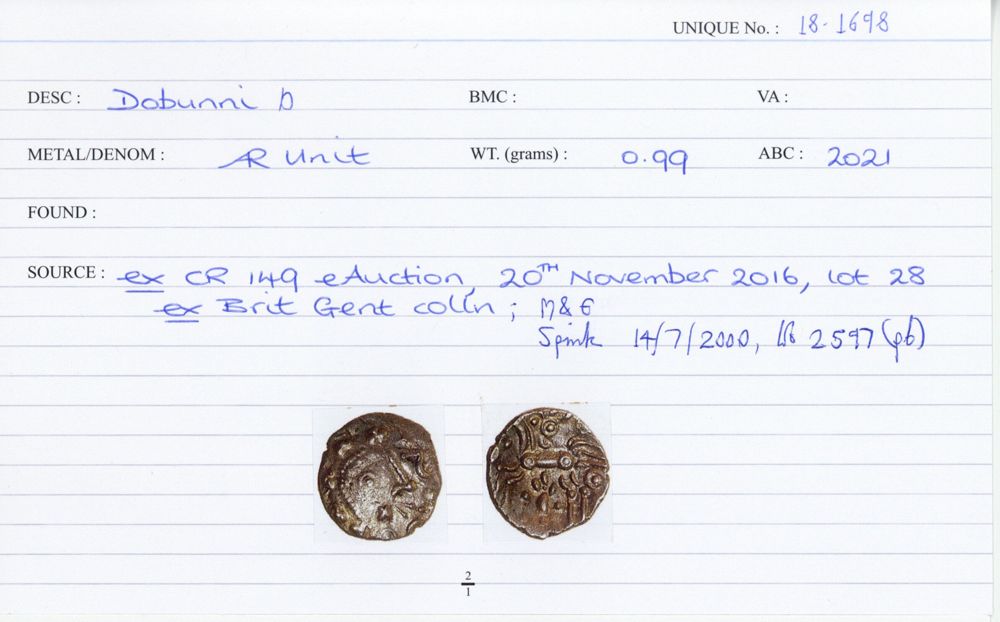 UNIQUE No. : 18-1698
DESC : Dobunni D BMC : VA :
METAL/DENOM : AR Unit WT. (grams) : 0.99 ABC : 2021
FOUND :
SOURCE : ex CR 149 eAuction, 20TH November 2016, lot 28
ex Brit Gent colln ; M&E
Spink 14/7/2000, 2597 (pt)
2
1